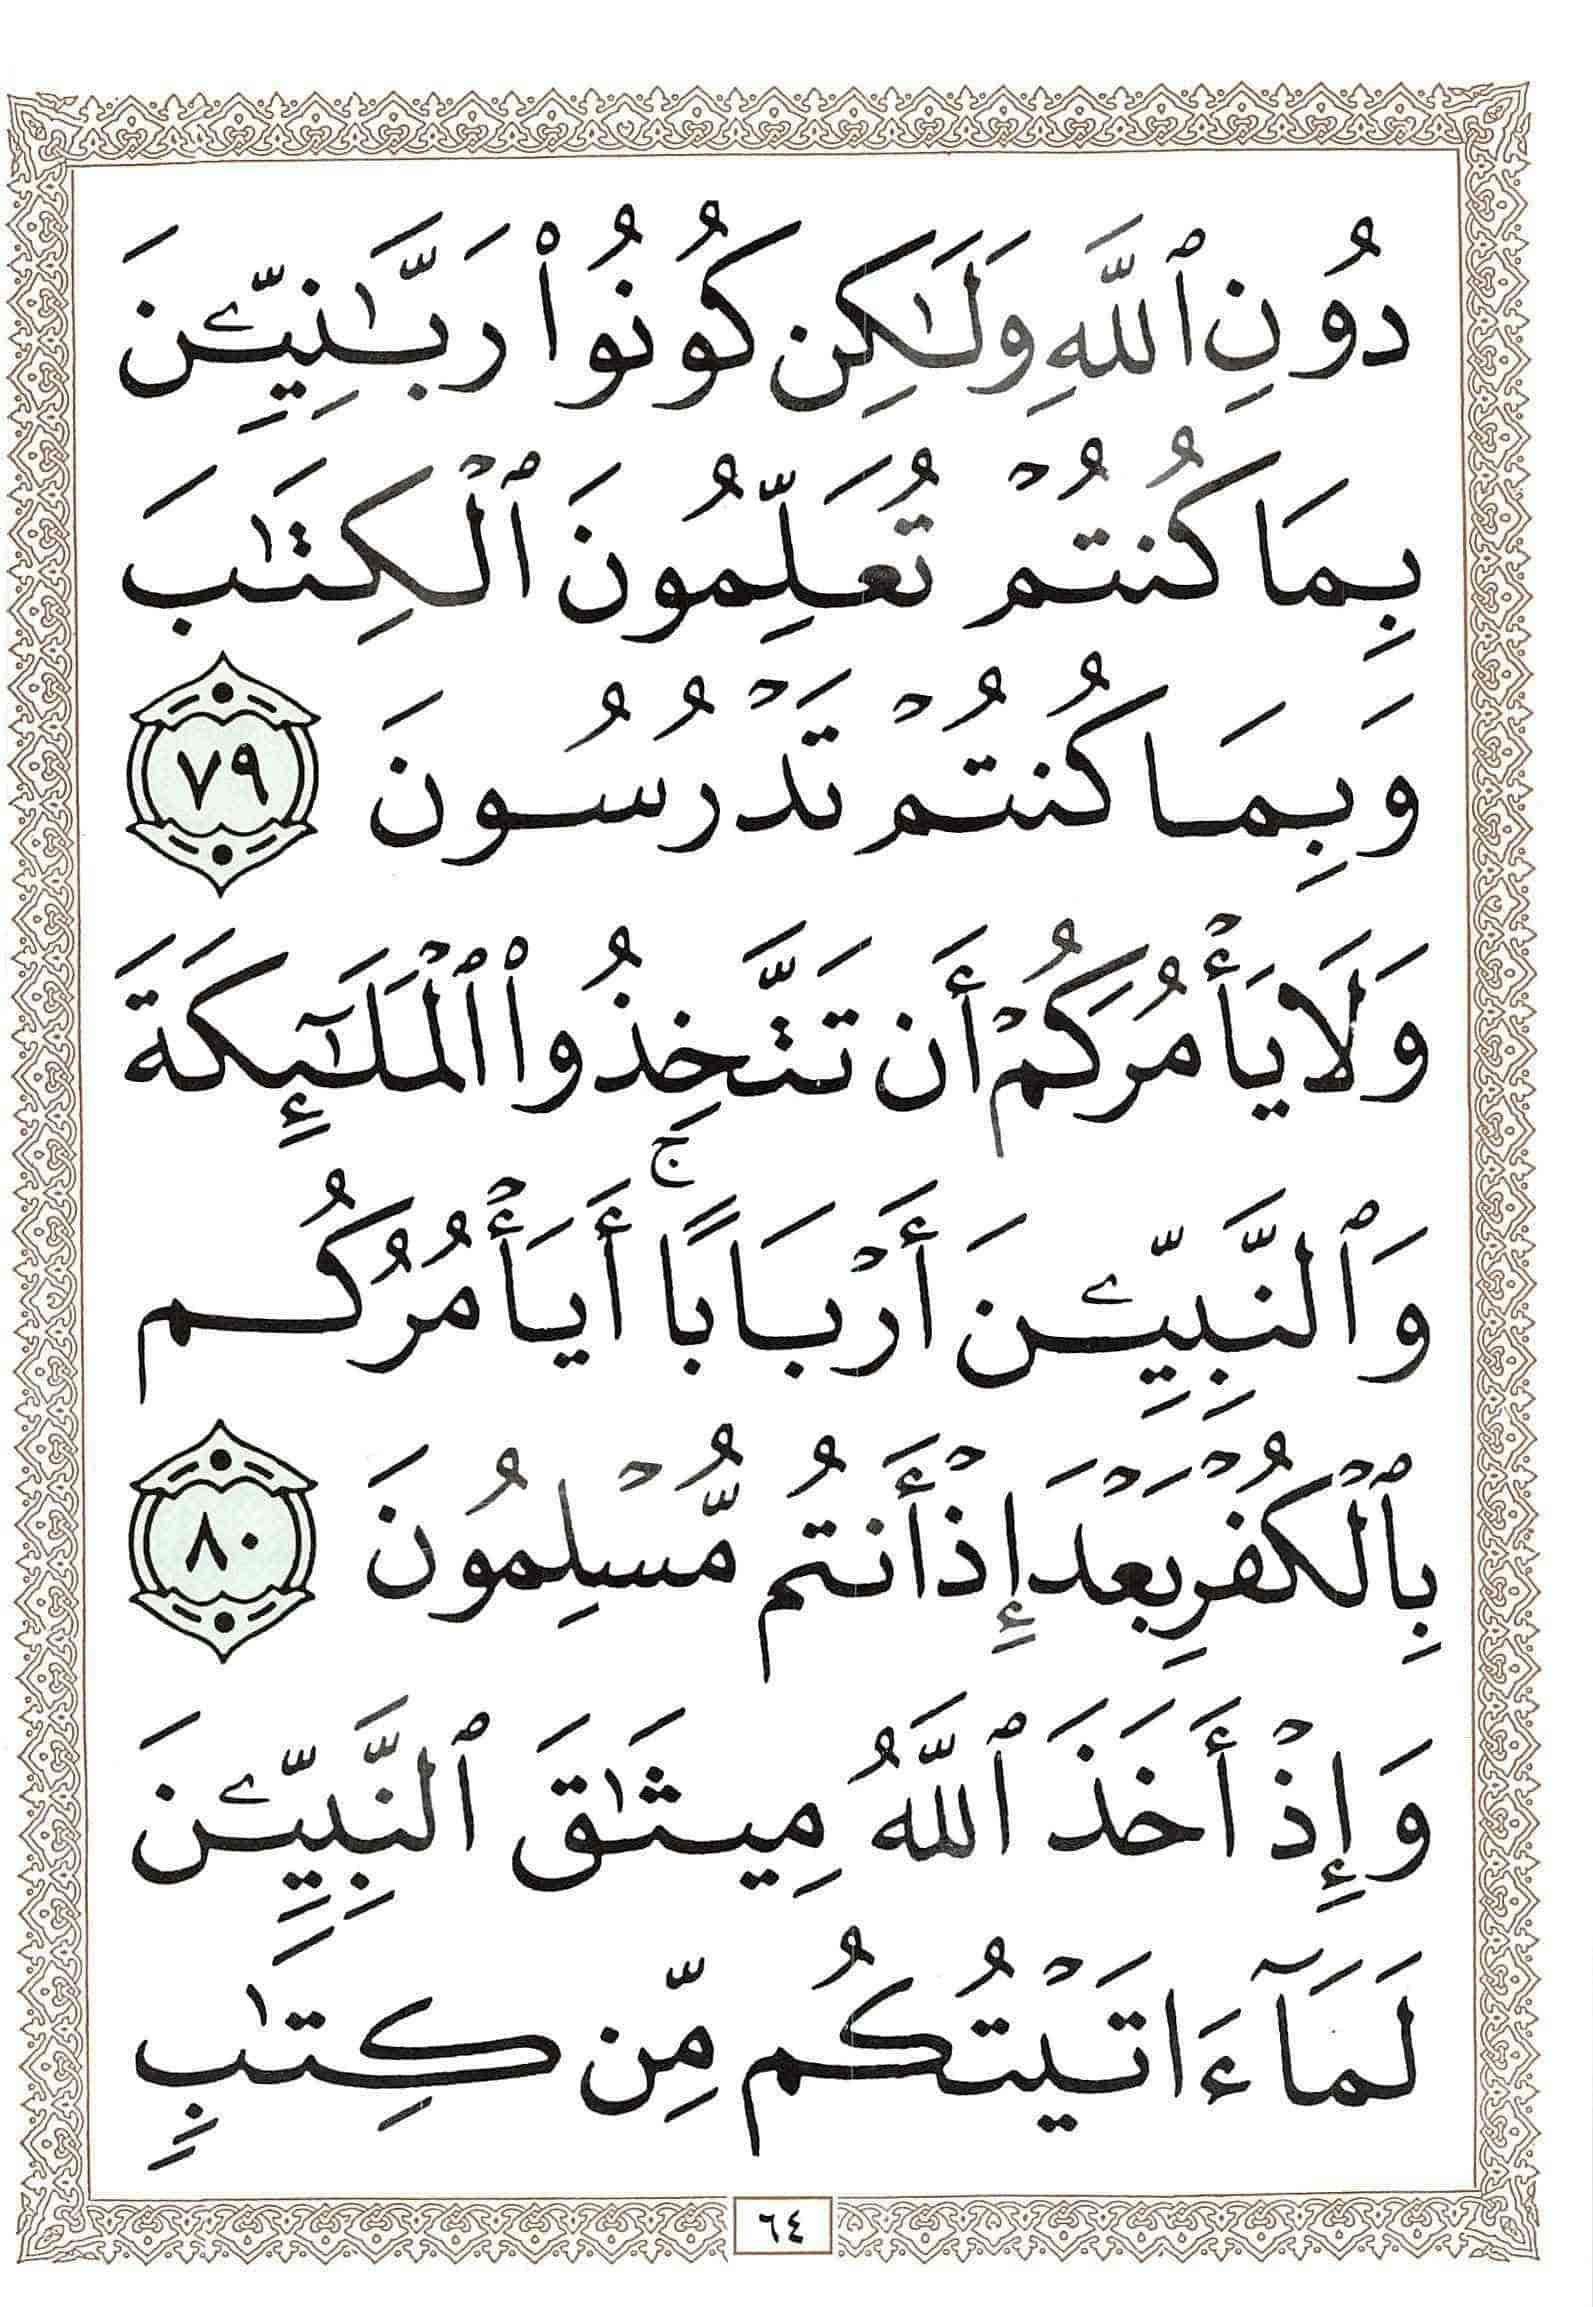 دُونِ ٱللَّهِ وَلَٰكِن كُونُوا۟ رَبَّٰنِيِّۦنَ
بِمَا كُنتُمْ تُعَلِّمُونَ ٱلْكِتَٰبَ
وَبِمَا كُنتُمْ تَدْرُسُونَ ٧٩
وَلَا يَأْمُرَكُمْ أَن تَتَّخِذُوا۟ ٱلْمَلَٰٓئِكَةَ
وَٱلنَّبِيِّۦنَ أَرْبَابًا ۚ أَيَأْمُرُكُم
بِٱلْكُفْرِ بَعْدَ إِذْ أَنتُم مُّسْلِمُونَ ٨٠
وَإِذْ أَخَذَ ٱللَّهُ مِيثَٰقَ ٱلنَّبِيِّۦنَ
لَمَآ ءَاتَيْتُكُم مِّن كِتَٰبٍ
٦٤